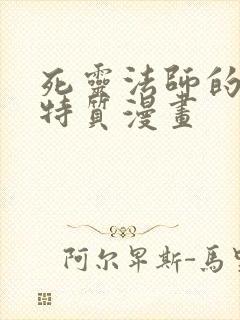 死靈法師的
特質漫畫
阿尔卑斯-馬